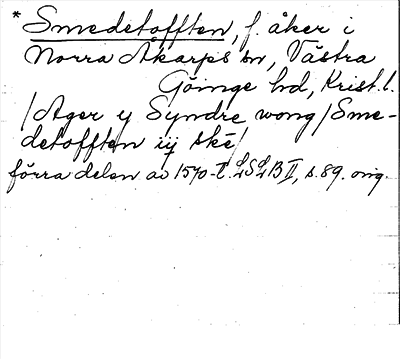 * Smedetofften, f. åker i
Norra Åkarps sn, Västra
Göinge hd, Krist. l.
/Ager y Syndre wong/Sme-
detofften iij skē/
förra delen av 1570-t. LSLB II, s. 89. orig.